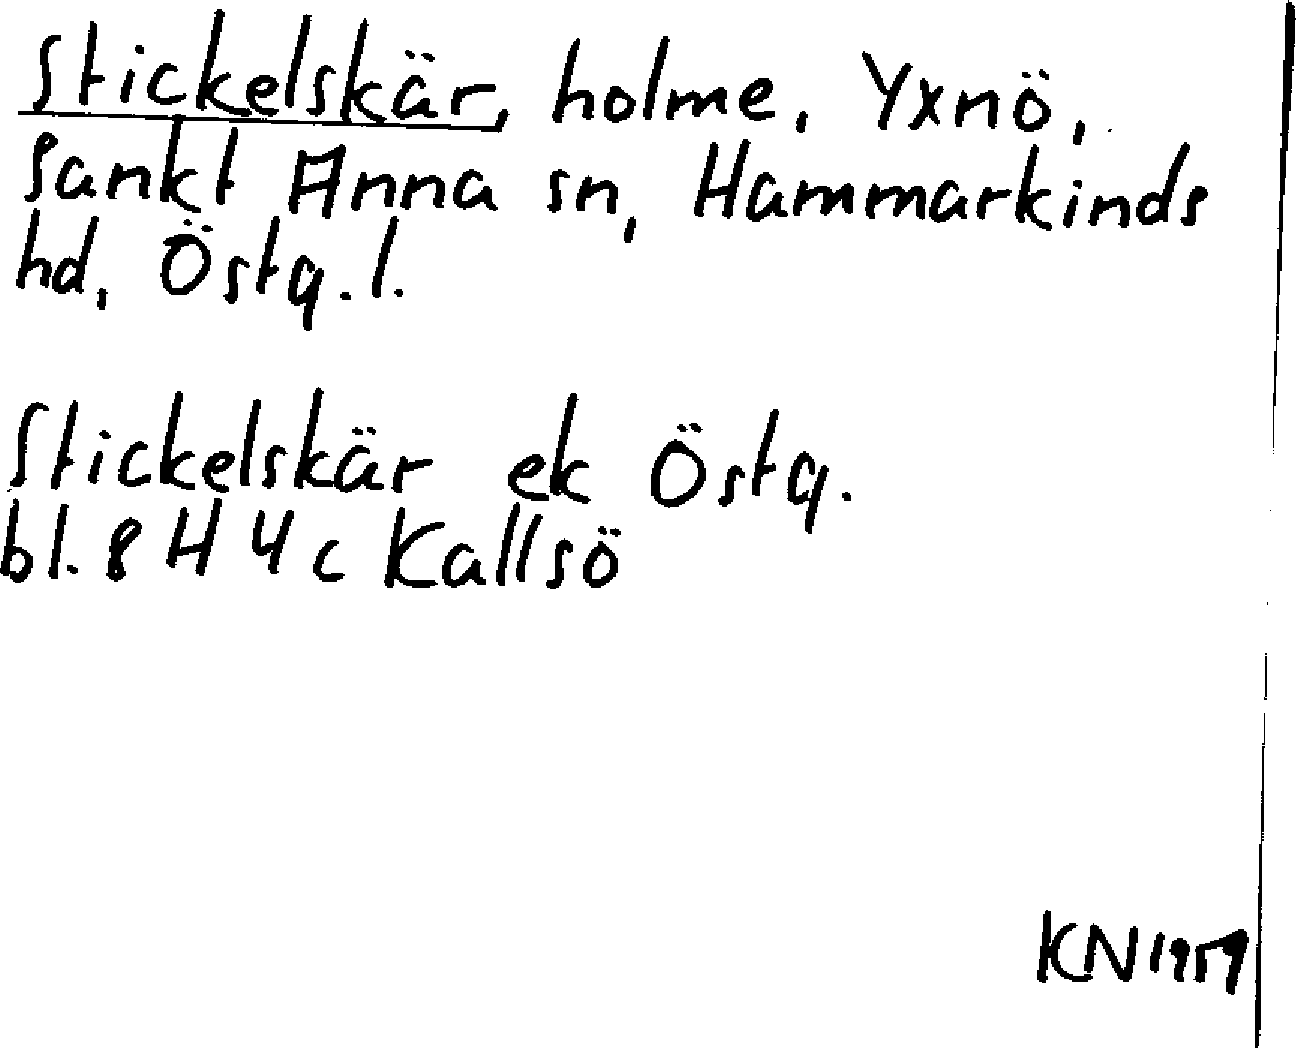 Stickelskär, holme, Yxnö,
Sankt Anna sn, Hammarkinds
hd, Östg. l.
Stickelskär ek Östg.
bl. 8 H 4 c Kallsö
KN 1959